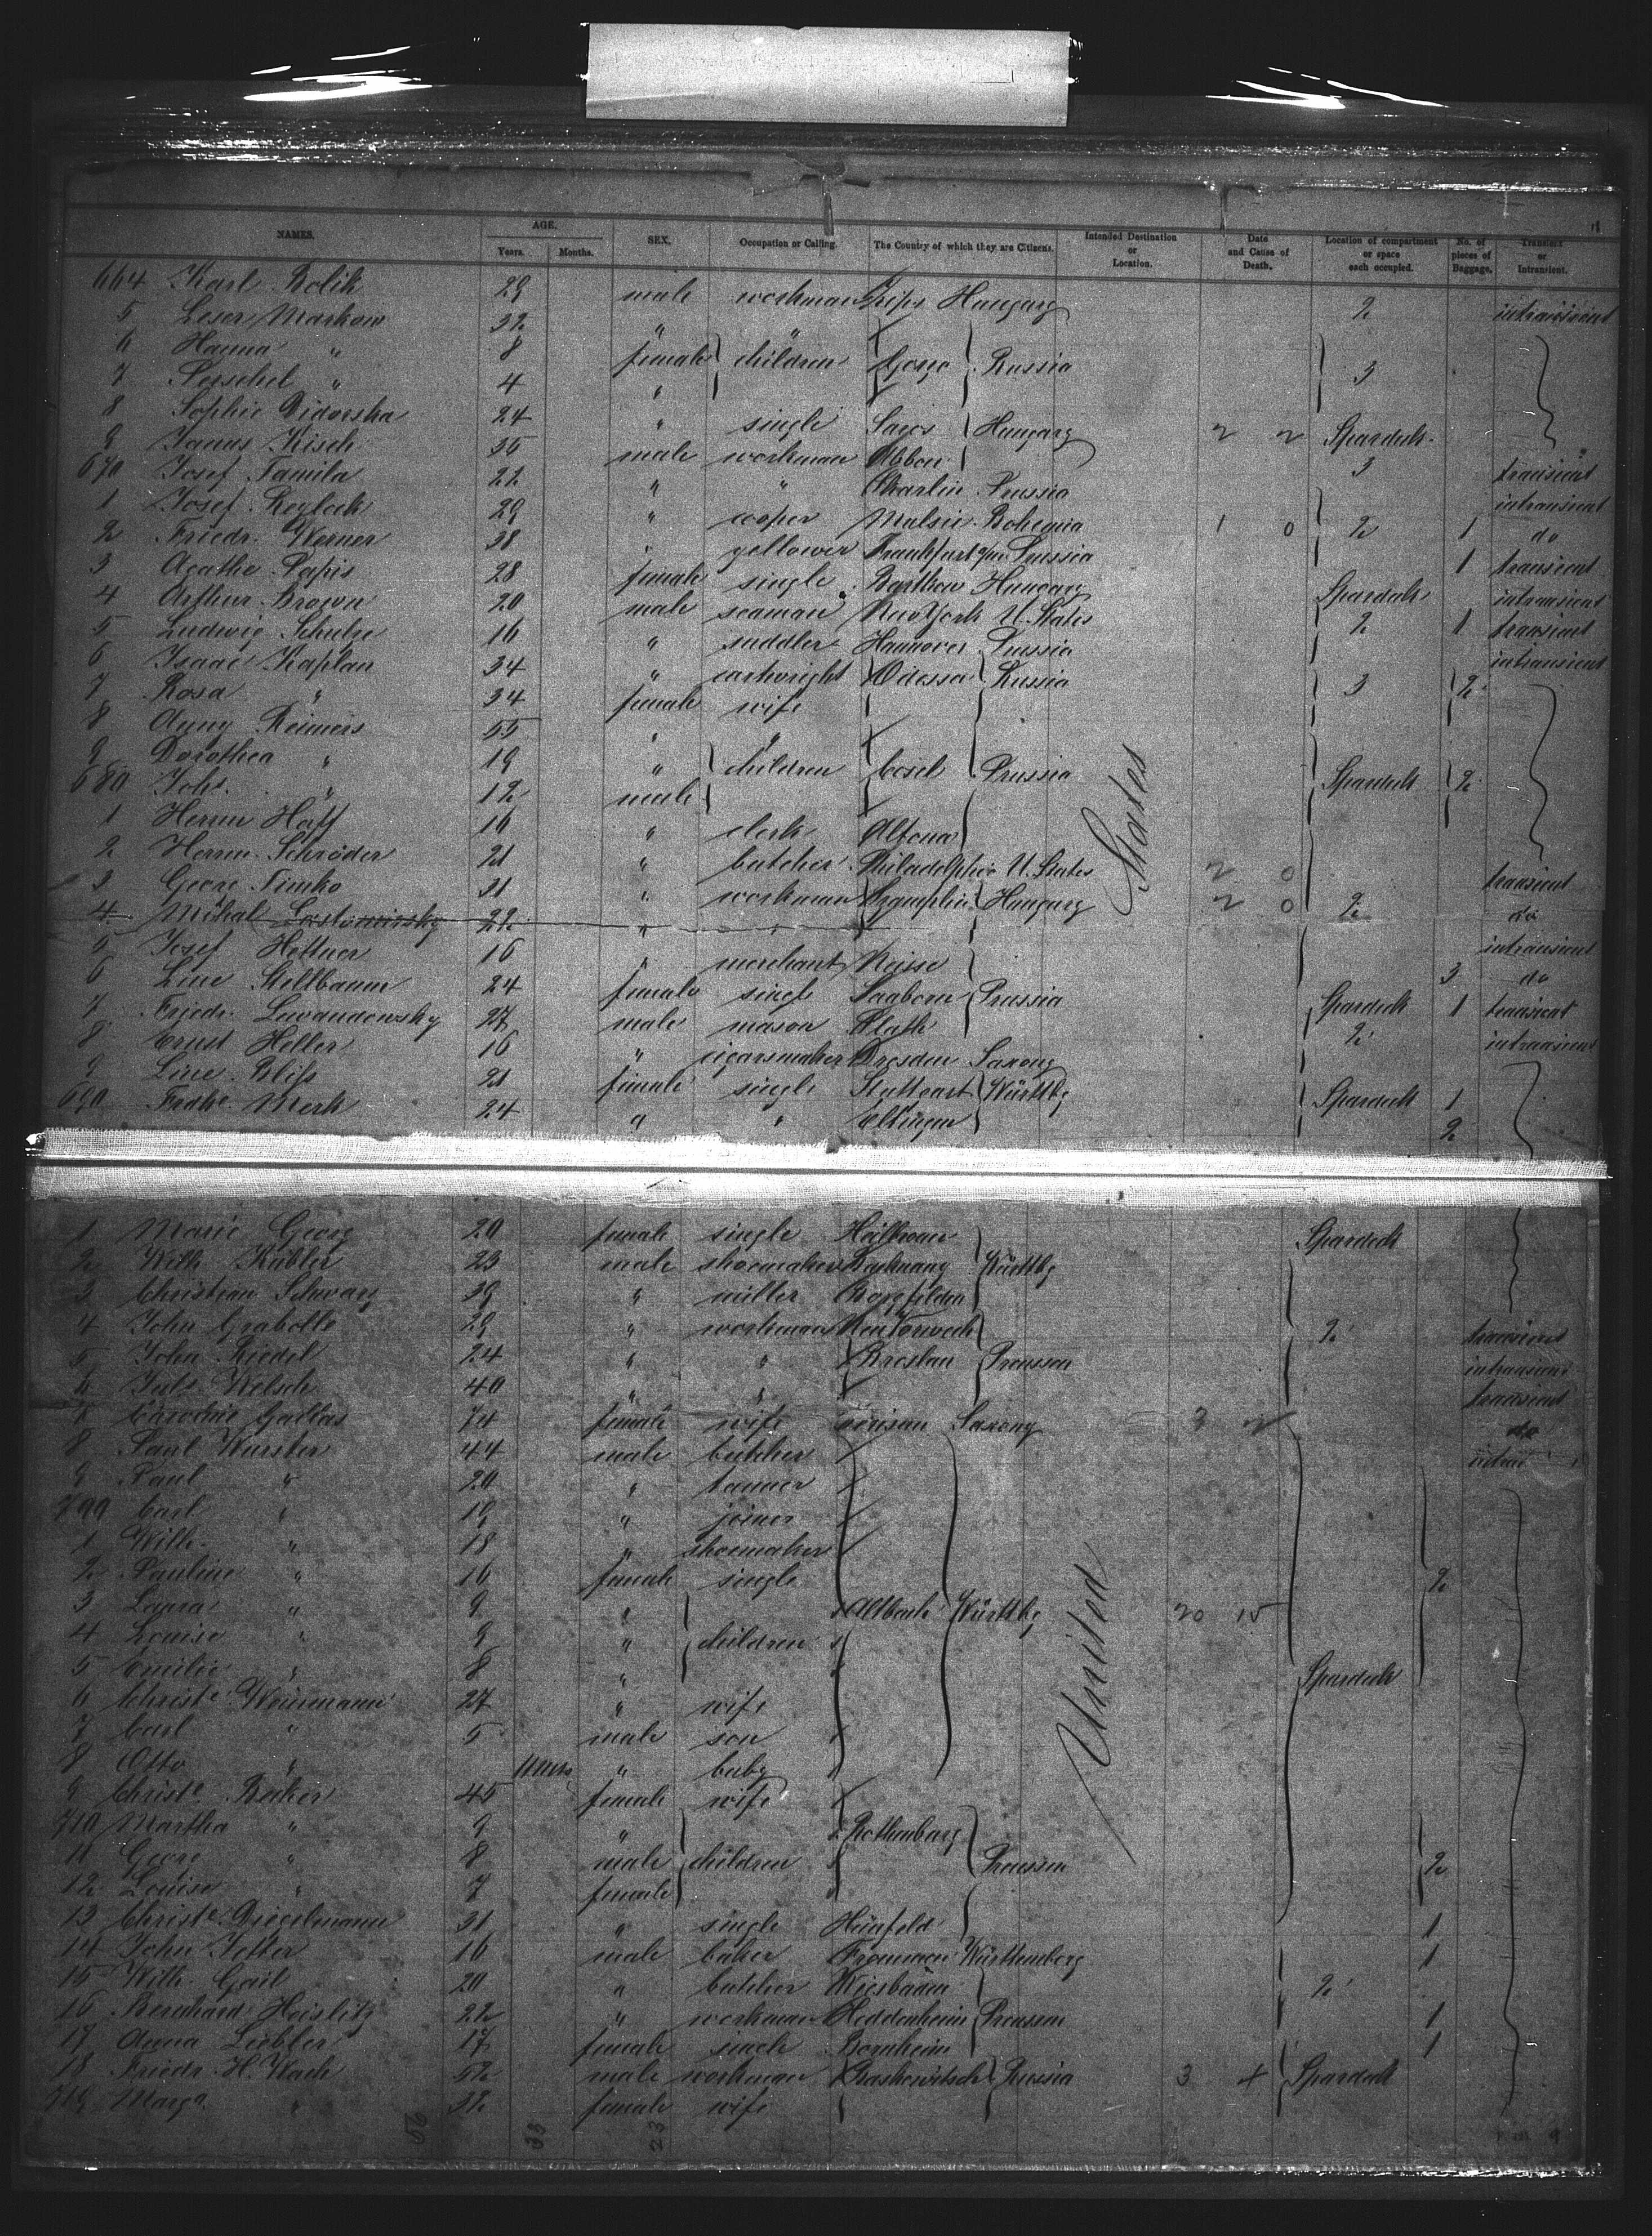 NAMES. AGE. SEX. Occupation or Calling. The Country of which they are Citizens. Intended Destination or Location. Date and Cause of Death. Location of compartment or space each occupied. No. of pieces of Baggage. Transient or Intransient.
Years. Months.
664 Karl Bolik 29 male workman Zips Hungary 2 intransient
5 Leser Markow 32 " "
6 Hanna " 8 female children Russia 3
7 Perschel " 4 "
8 Sophie Didorska 24 " single Hungary 2 2 Spardeck
9 Janus Kisch 35 male workman Abbon 3 transient
670 Josef Tamila 22 " " Prussia intransient
1 Josef 29 " cooper Bohemia 1 0 2 1 do
2 Friedr. Werner 38 " Frankfurt a/m Prussia 1 transient
3 Agathe Papis 28 female single Hungary Spardeck intransient
4 Arthur Brown 20 male seaman New York U. States 2 1 transient
5 Ludwig Schulze 16 " saddler Hannover Prussia intransient
6 Isaac Kaplan 34 " cartwright Odessa Russia 3 2
7 Rosa " 34 female wife
8 Reimers 55 " "
9 Dorothea " 19 " children Cosel Prussia Spardeck 2
680 Johs. " 12 male
1 Herm Haff 16 " clerk Altona
2 Herm. Schröder 21 " butcher Philadelphia U. States 2 0 transient
3 Georg Timko 31 " workman Hungary 2 0 2 do
4 Mihal 22 " " intransient
5 Josef Hettner 16 " merchant Neisse 3 do
6 Line Stellbaum 24 female single Saaborn Prussia Spardeck 1 transient
7 Friedr. Lewandowsky 27 male mason Plath 2 intransient
8 Ernst Heller 16 " cigarsmaker Dresden Saxony
9 Line Bliss 21 female single Stuttgart Württbg Spardeck 1
690 Fredke. Merk 24 " " Eltingen 2
1 Marie Georg 20 female single Heilbronn Spardeck
2 Wilh Kübler 23 male shoemaker Backnang Württbg
3 Christian Schwarz 39 " miller
4 John Grabolle 29 " workman 2 transient
5 John Riedel 24 " " Breslau Preussen intransient
6 Juls. Welsch 40 " " transient
7 Gallas 74 female wife Saxony do
8 Karl Wurster 44 male butcher
9 Paul " 20 " tanner
700 Carl " 19 " joiner
1 Wilh. " 18 " shoemaker
2 Pauline " 16 female single 2
3 Laura " 9 " Altbach Württbg 20 15
4 Louise " 9 " children
5 Emilie " 8 " Spardeck
6 Christe. Weinmann 27 " wife
7 Carl " 5 male son
8 Otto " 11 mos " baby
9 Christe. Becker 45 female wife
710 Martha " 9 " Rothenburg
11 Georg " 8 male children Preussen 2
12 Louise " 7 female
13 Christe. Diegelmann 31 " single Hünfeld 1
14 John Jetter 16 male baker Frommern Württemberg 1
15 Wilh. Gail 20 " butcher Wiesbaden 2
16 Bernhard Heislitz 22 " workman Heddenheim Preussen 1
17 Anna Liebler 17 female single Bornheim 1
18 Friedr. H. Wach 52 male workman Russia 3 4 Spardeck
719 Marga. " 32 female wife
United States
33
23